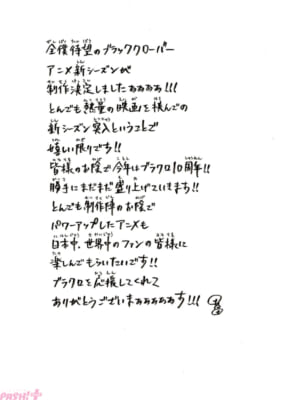 全僕待望のブラッククローバー
アニメ新シーズンが
制作決定しましたぁぁぁぁ!!!
とんでも熱量の映画を挟んでの
新シーズン突入ということで
嬉しい限りです!!
皆様のお陰で今年はブラクロ10周年!!
勝手にまだまだ盛り上げていきます!!
とんでも制作陣のお陰で
パワーアップしたアニメも
日本中、世界中のファンの皆様に
楽しんでもらいたいです!!
ブラクロを応援してくれて
ありがとうございまぁぁぁぁぁす!!!
PASH!+